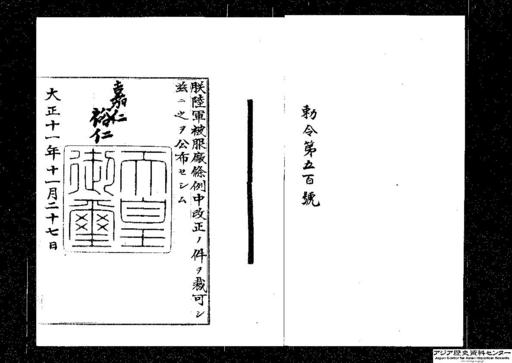 勅令第五百號
朕陸軍被服廠條例中改正ノ件ヲ裁可シ
玆ニ之ヲ公布セシム
嘉仁
裕仁
天皇御璽
大正十一年十一月二十七日
アジア歴史資料センター
Japan Center for Asian Historical Records